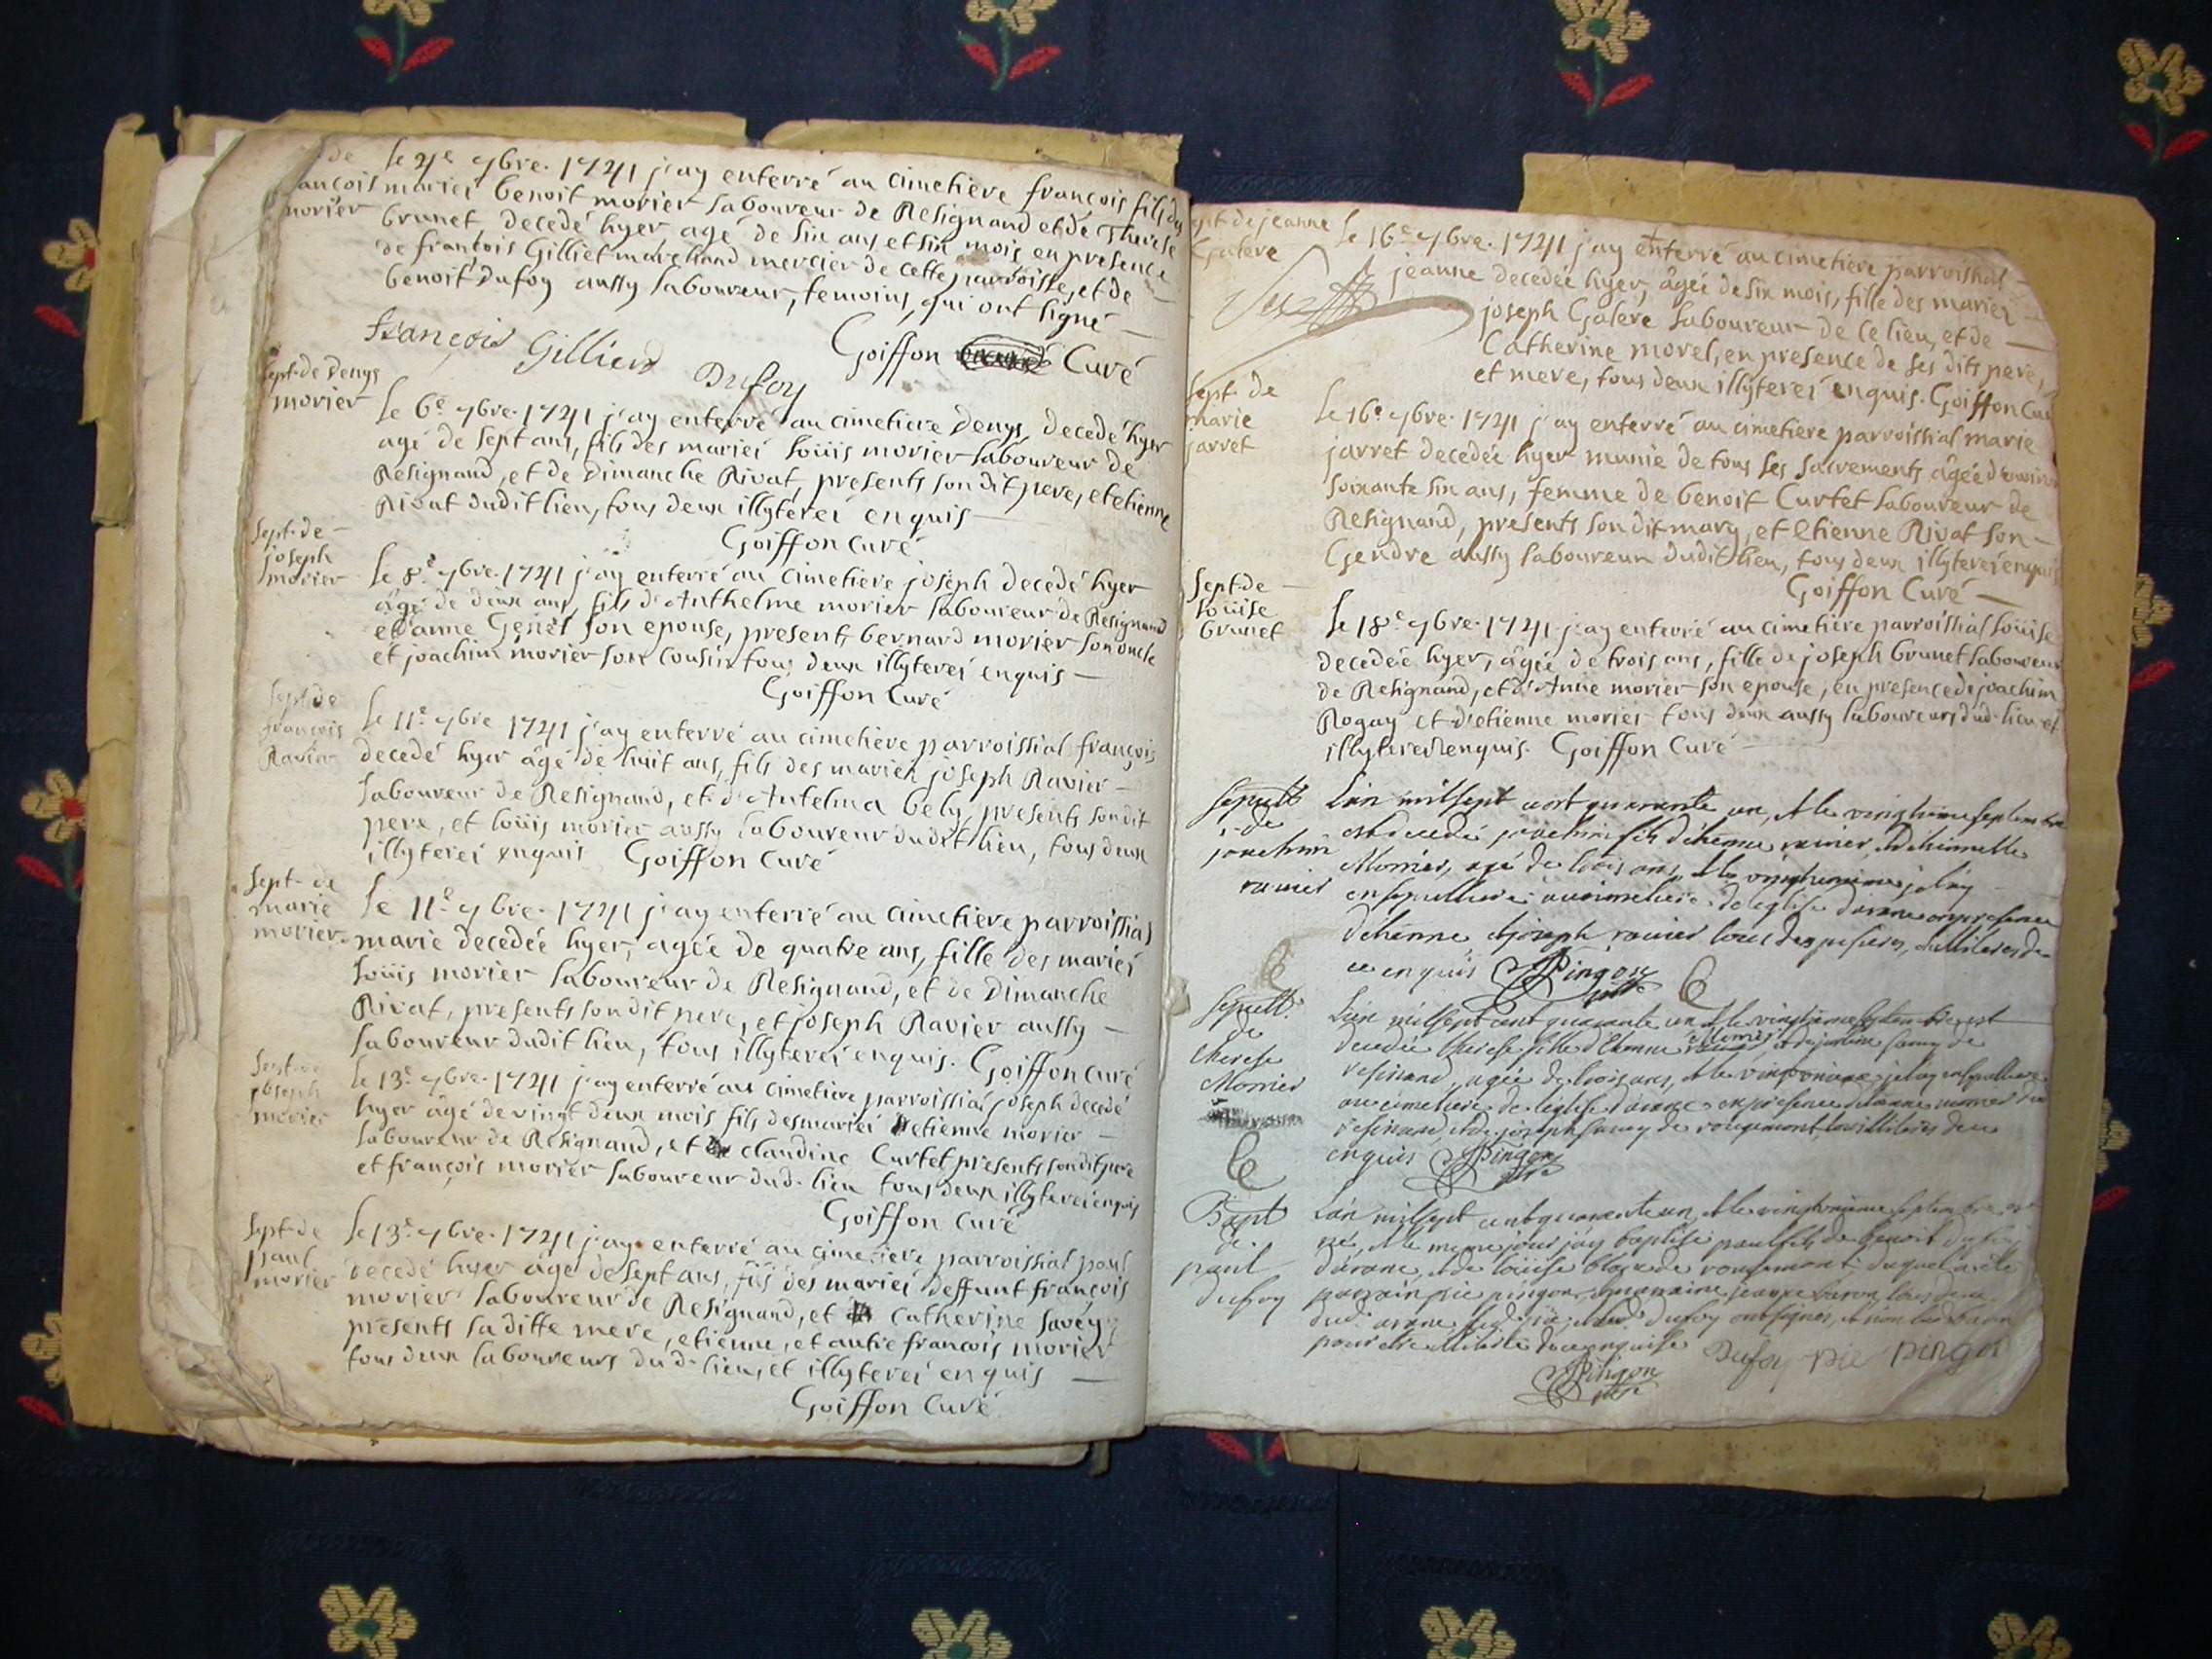 de
françois
morier
le 4e 7bre. 1741 j'ay enterré au cimetiere françois fils des
mariei benoit morier laboureur de Resignand et de Therese
brunet decedé hyer agé de six ans et six mois en presence
de françois Gilliet marchand mercier de cette parroisse, et de
benoit Dufoy aussy laboureur, temoins, qui ont signé
Goiffon Curé
françois Gilliet
Dufoy
Sept. de Denys
morier
le 6e 7bre. 1741 j'ay enterré au cimetiere Denys decedé hyer
agé de sept ans, fils des mariei Loüis morier laboureur de
Resignand, et de Dimanche Rivat, presents son dit pere, et etienne
Rivat dudit lieu, tous deux illyterei enquis
Goiffon Curé
Sept. de
joseph
morier
le 8e 7bre. 1741 j'ay enterré au cimetiere joseph decedé hyer
âgé de deux ans, fils d'Anthelme morier laboureur de Resignand
et d'anne Genet son epouse, presents bernard morier son oncle
et joachim morier son cousin tous deux illyterei enquis
Goiffon Curé
Sept. de
françois
Ravier
le 11e 7bre 1741 j'ay enterré au cimetiere parroissial françois
decedé hyer âgé de huit ans, fils des mariei joseph Ravier
laboureur de Resignand, et d'Antelma bely, presents son dit
pere, et loüis morier aussy laboureur dudit lieu, tous deux
illyterei enquis Goiffon Curé
Sept. de
marie
morier
le 11e 7bre. 1741 j'ay enterré au cimetiere parroissial
marie decedée hyer, agée de quatre ans, fille des mariei
Loüis morier laboureur de Resignand, et de Dimanche
Rivat, presents son dit pere, et joseph Ravier aussy
laboureur dudit lieu, tous illyterei enquis. Goiffon Curé
Sept. de
joseph
morier
le 13e 7bre. 1741 j'ay enterré au cimetiere parroissial joseph decedé
hyer âgé de vingt deux mois fils des mariei etienne morier
laboureur de Resignand, et claudine Curtet presents son dit pere
et françois morier laboureur dud. lieu tous deux illyterei enquis
Goiffon Curé
Sept. de
paul
morier
le 13e 7bre. 1741 j'ay enterré au cimetiere parroissial paul
decedé hyer âgé de sept ans, fils des mariei deffunt françois
morier laboureur de Resignand, et Catherine Savey
presents laditte mere, etienne, et autre françois morier
tous deux laboureurs du d. lieu, et illyterei enquis
Goiffon Curé
Sept. de jeanne
Galere
le 16e 7bre. 1741 j'ay enterré au cimetiere parroissial
jeanne decedée hyer, âgée de six mois, fille des mariei
joseph Galere laboureur de ce lieu, et de
Catherine morel, en presence de ses dits pere,
et mere, tous deux illyterei enquis. Goiffon Curé
Sept. de
marie
jarret
le 16e 7bre. 1741 j'ay enterré au cimetiere parroissial marie
jarret decedée hyer munie de tous ses sacrements âgée d'environ
soixante six ans, femme de benoit Curtet laboureur de
Resignand, presents son dit mary, et Etienne Rivat son
Gendre aussy laboureur dudit lieu, tous deux illyterei enquis
Goiffon Curé
Sept. de
Loüise
brunet
le 18e 7bre. 1741 j'ay enterré au cimetiere parroissial Loüise
decedée hyer, âgée de trois ans, fille de joseph brunet laboureur
de Resignand, et d'Anne morier son epouse, en presence de joachim
Rogay et d'etienne morier tous deux aussy laboureurs dud. lieu et
illyterei enquis. Goiffon Curé
Sepult.
de
joachim
ravier
L'an mil sept cent quarante un, et le vingtieme septembre
est decedé joachim fils d'etienne ravier, et d'
Morier, agé de trois ans, et le vingt unieme je l'ay
ensepulturé au cimetiere de l'eglise d'arane en presence
d'etienne et joseph ravier tous deux illiteres de
ce enquis Pingon
Sepult.
de
therese
Morier
L'an mil sept cent quarante un et le vingtieme septembre est
decedée therese fille d'Etienne Morier et de
resinand, agée de trois ans, et le vingt unieme je l'ay ensepulturé
au cimetiere de l'eglise d'arane en presence morier de
resinand, et de joseph savey de rougemont illiteres de ce
enquis Pingon
Bapt
de
paul
dufoy
L'an mil sept cent quarante un et le vingt unieme septembre est
né, et le meme jour j'ay baptisé paul fils de benoit dufoy
d'arane, et de loüise de rougemont, duquel a été
parrain pie pingon, marraine jeanne baron, tous deux
dud. arane led. pie, et led. dufoy ont signés, et non lad. baron
pour etre illiterée de ce enquise Dufoy pie pingon
Pingon